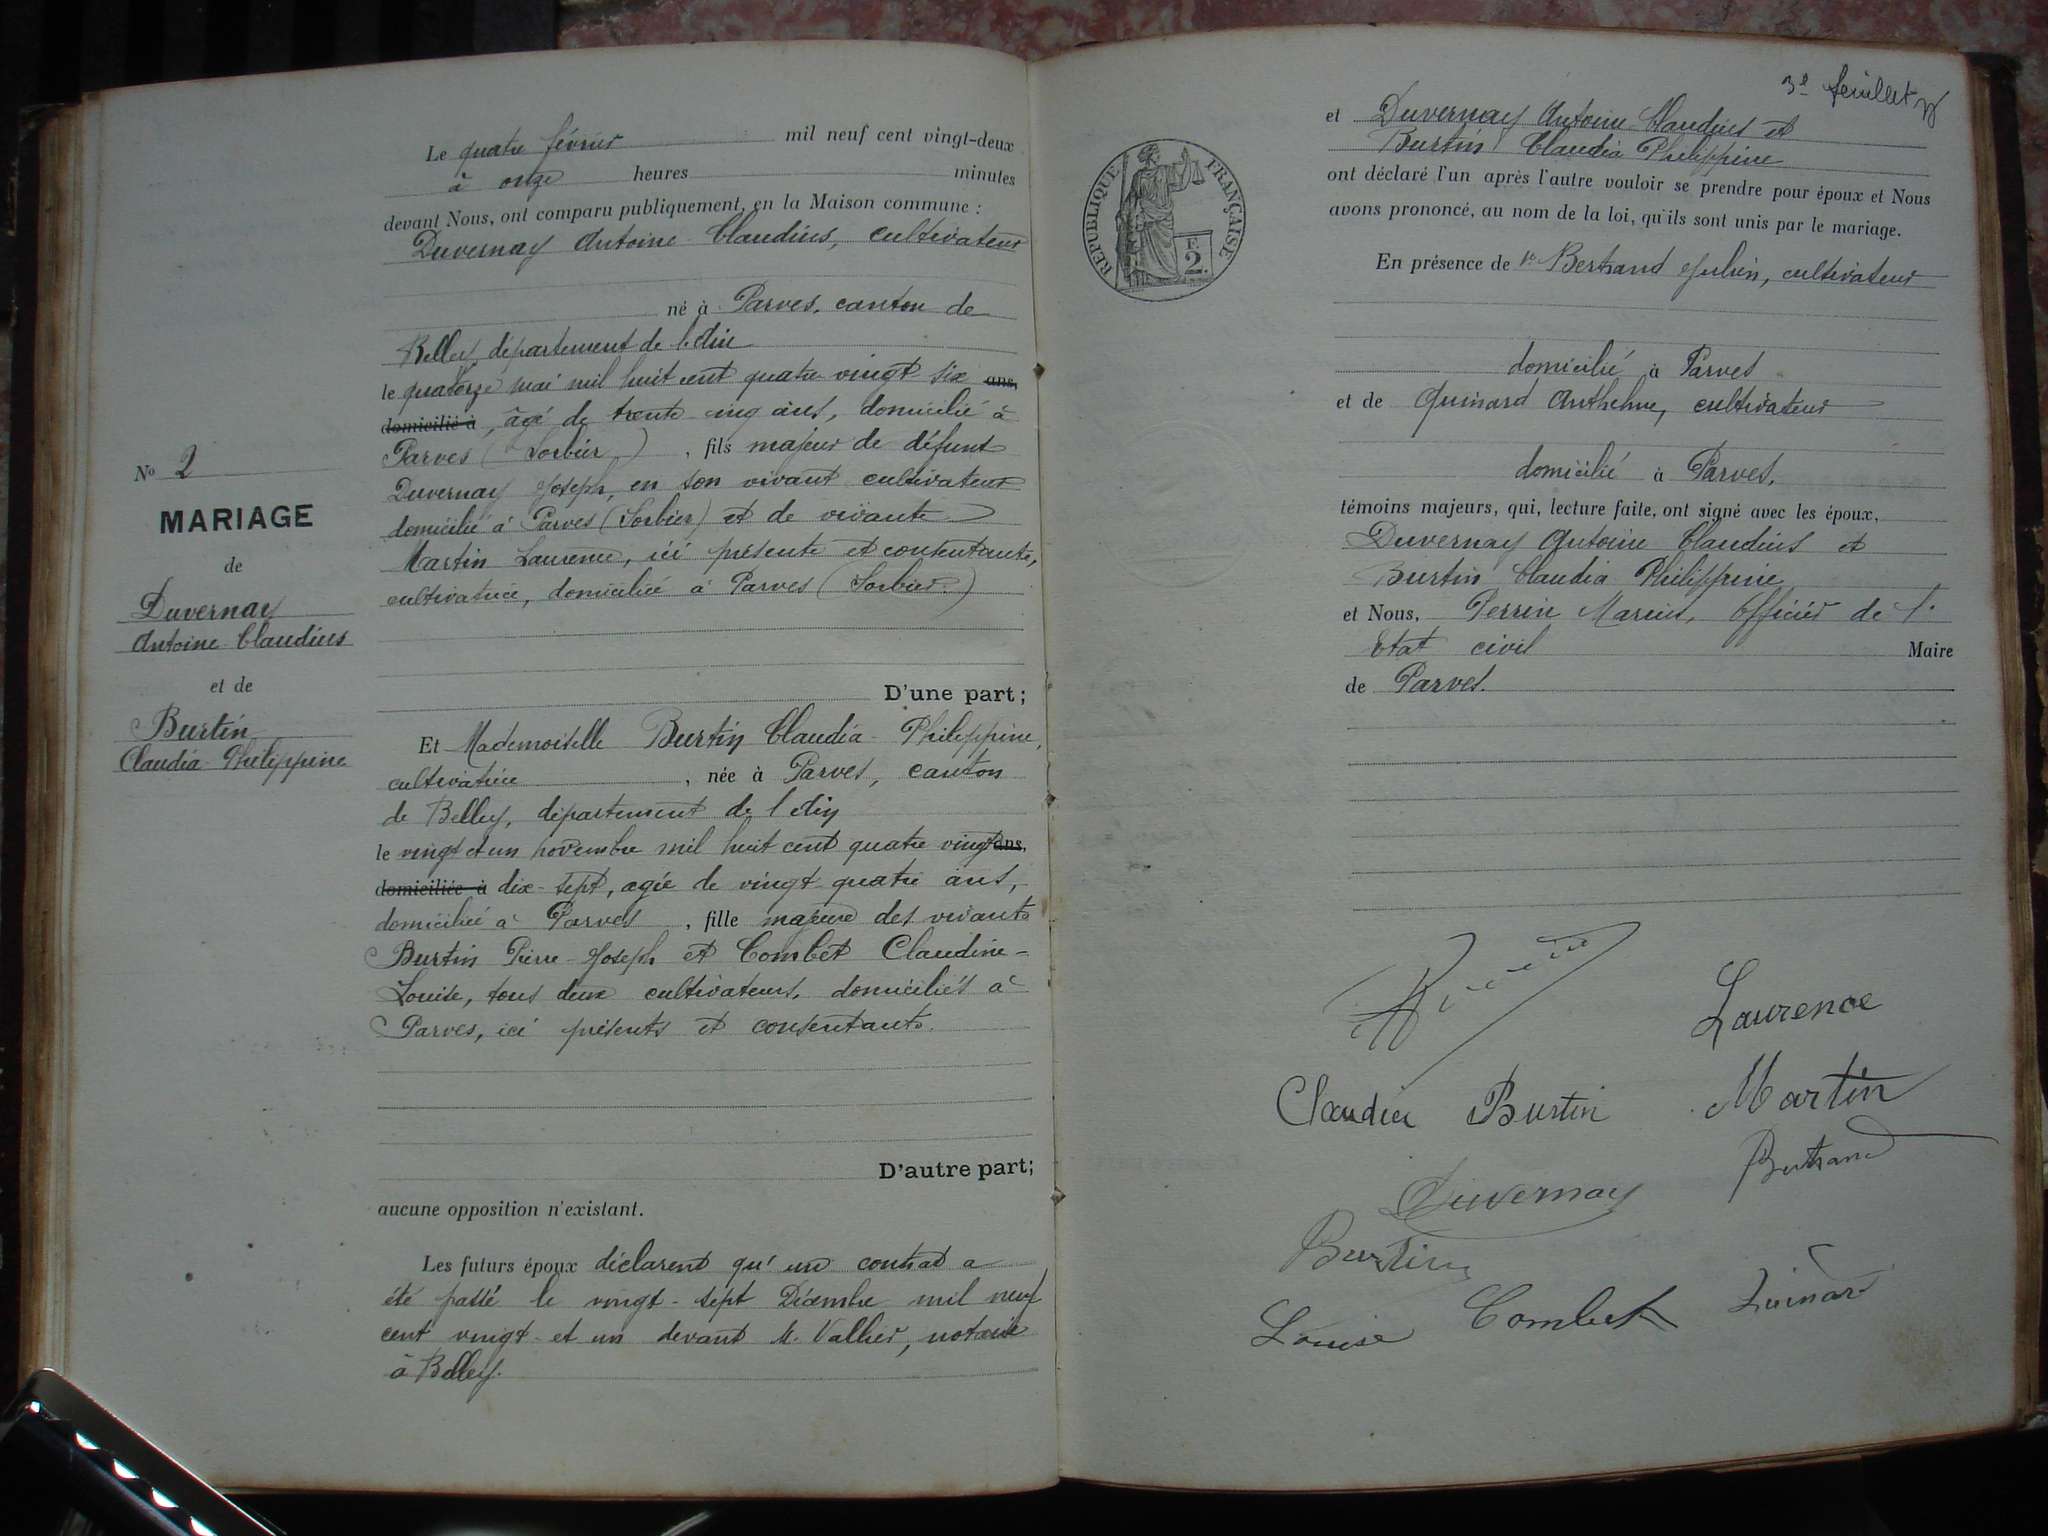 Le quatre février mil neuf cent vingt-deux
à onze heures minutes
devant Nous, ont comparu publiquement, en la Maison commune :
Duvernay Antoine Claudius, cultivateur
né à Parves, canton de
Belley, département de l'Ain
le quatorze mai mil huit cent quatre vingt six ans,
domicilié à, âgé de trente cinq ans, domicilié à
Parves (Sorbier), fils majeur de défunt
Duvernay Joseph, en son vivant cultivateur
domicilié à Parves (Sorbier) et de vivante
Martin Laurence, ici présente et consentante,
cultivatrice, domiciliée à Parves (Sorbier)
D'une part;
No 2
MARIAGE
de
Duvernay
Antoine Claudius
et de
Burtin
Claudia Philippine
Et Mademoiselle Burtin Claudia Philippine,
cultivatrice, née à Parves, canton
de Belley, département de l'Ain
le vingt et un novembre mil huit cent quatre vingt ans,
domiciliée à dix-sept, agée de vingt quatre ans,
domiciliée à Parves, fille majeure des vivants
Burtin Pierre-Joseph et Combet Claudine-
Louise, tous deux cultivateurs, domiciliés à
Parves, ici présents et consentants.
D'autre part;
aucune opposition n'existant.
Les futurs époux déclarent qu'un contrat a
été passé le vingt-sept Décembre mil neuf
cent vingt et un devant M. Vallier, notaire
à Belley.
3e feuillet
RÉPUBLIQUE FRANÇAISE
F.
2.
et Duvernay Antoine Claudius et
Burtin Claudia Philippine
ont déclaré l'un après l'autre vouloir se prendre pour époux et Nous
avons prononcé, au nom de la loi, qu'ils sont unis par le mariage.
En présence de Bertrand Julien, cultivateur
domicilié à Parves
et de Quinard Anthelme, cultivateur
domicilié à Parves,
témoins majeurs, qui, lecture faite, ont signé avec les époux,
Duvernay Antoine Claudius et
Burtin Claudia Philippine
et Nous, Perrin Marius, Officier de l'
Etat civil Maire
de Parves.
Laurence
Claudia Burtin Martin
Bertrand
Duvernay
Burtin
Louise Combet Quinard